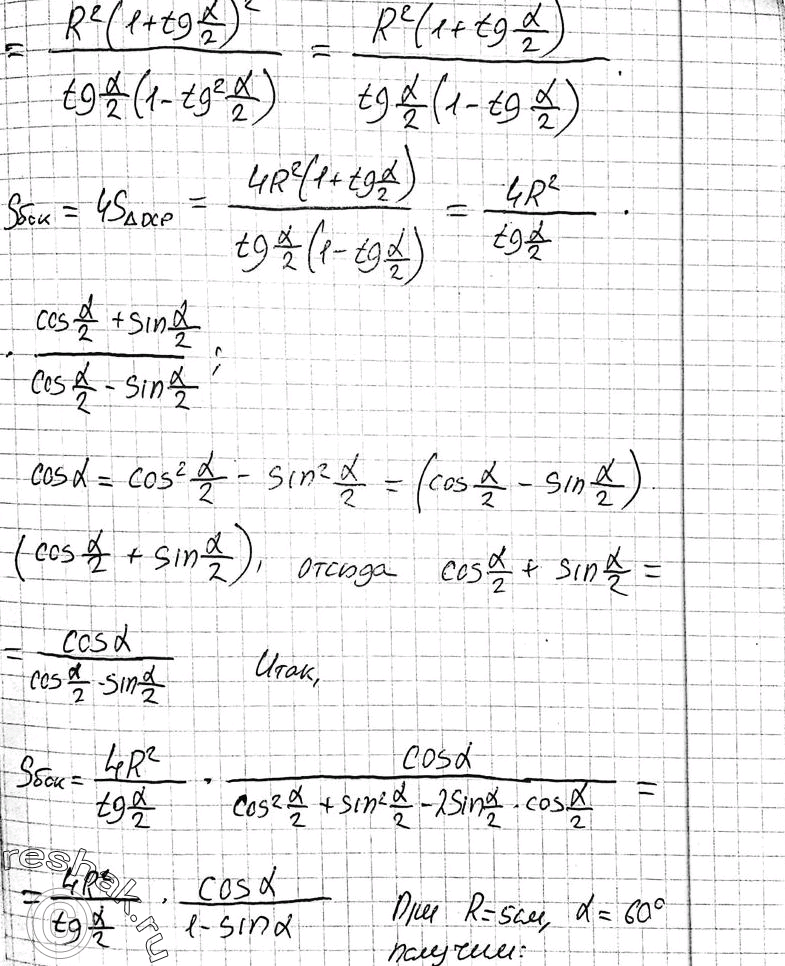 = R²(1+tg α/2)² / tg α/2 (1 - tg² α/2) = R²(1+tg α/2) / tg α/2 (1 - tg α/2).
Sбок = 4S△DCP = 4R²(1+tg α/2) / tg α/2 (1 - tg α/2) = 4R² / tg α/2 ·
· cos α/2 + sin α/2 / cos α/2 - sin α/2 ;
cos α = cos² α/2 - sin² α/2 = (cos α/2 - sin α/2) ·
(cos α/2 + sin α/2), отсюда cos α/2 + sin α/2 =
= cos α / cos α/2 - sin α/2 Итак,
Sбок = 4R² / tg α/2 · cos α / cos² α/2 + sin² α/2 - 2sin α/2 · cos α/2 =
= 4R² / tg α/2 · cos α / 1 - sin α При R = 5см, α = 60°
получим:
reshak.ru